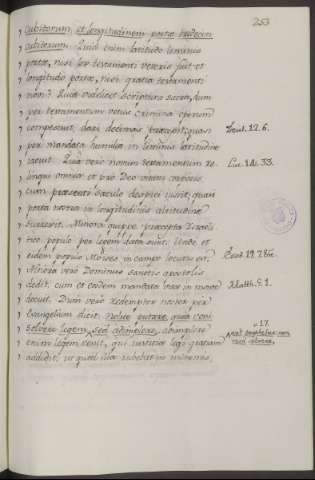 253
cubitorum, et longitudinem portæ tredecim
cubitorum. Quid enim latitudo liminis
portæ, nisi per testamentum veteris fuit et
longitudo portæ, nisi gratia testamenti
novi? Quia videlicet scriptura sacra, dum
per testamentum vetus crimina operum
compescuit, dari decimas
per mandata humilia in liminis latitudine
iacuit. Quia vero novum testamentum re-
linqui omnia et pro Deo vitam
tum præsenti sæculo despici iussit, quasi
porta nostra in longitudinis altitudine
surrexit. Minora quippe præcepta Israeli-
tico populo per legem data sunt. Unde et
eidem populo Moises in campo locutus est.
Maiora vero Dominus sanctis apostolis
dedit, cum et eadem mandata vitæ in monte
docuit. Dum vero Redemptor noster per
Evangelium dicit: Nolite putare, quia veni
solvere legem, sed adimplere, adimplere
enim legem venit, qui iustitiæ legis gratiam
addidit, ut quod illa iubebat in minimis,
Luc. 14. 33.
Exod. 19.
Matth. 5. 1.
v. 17.